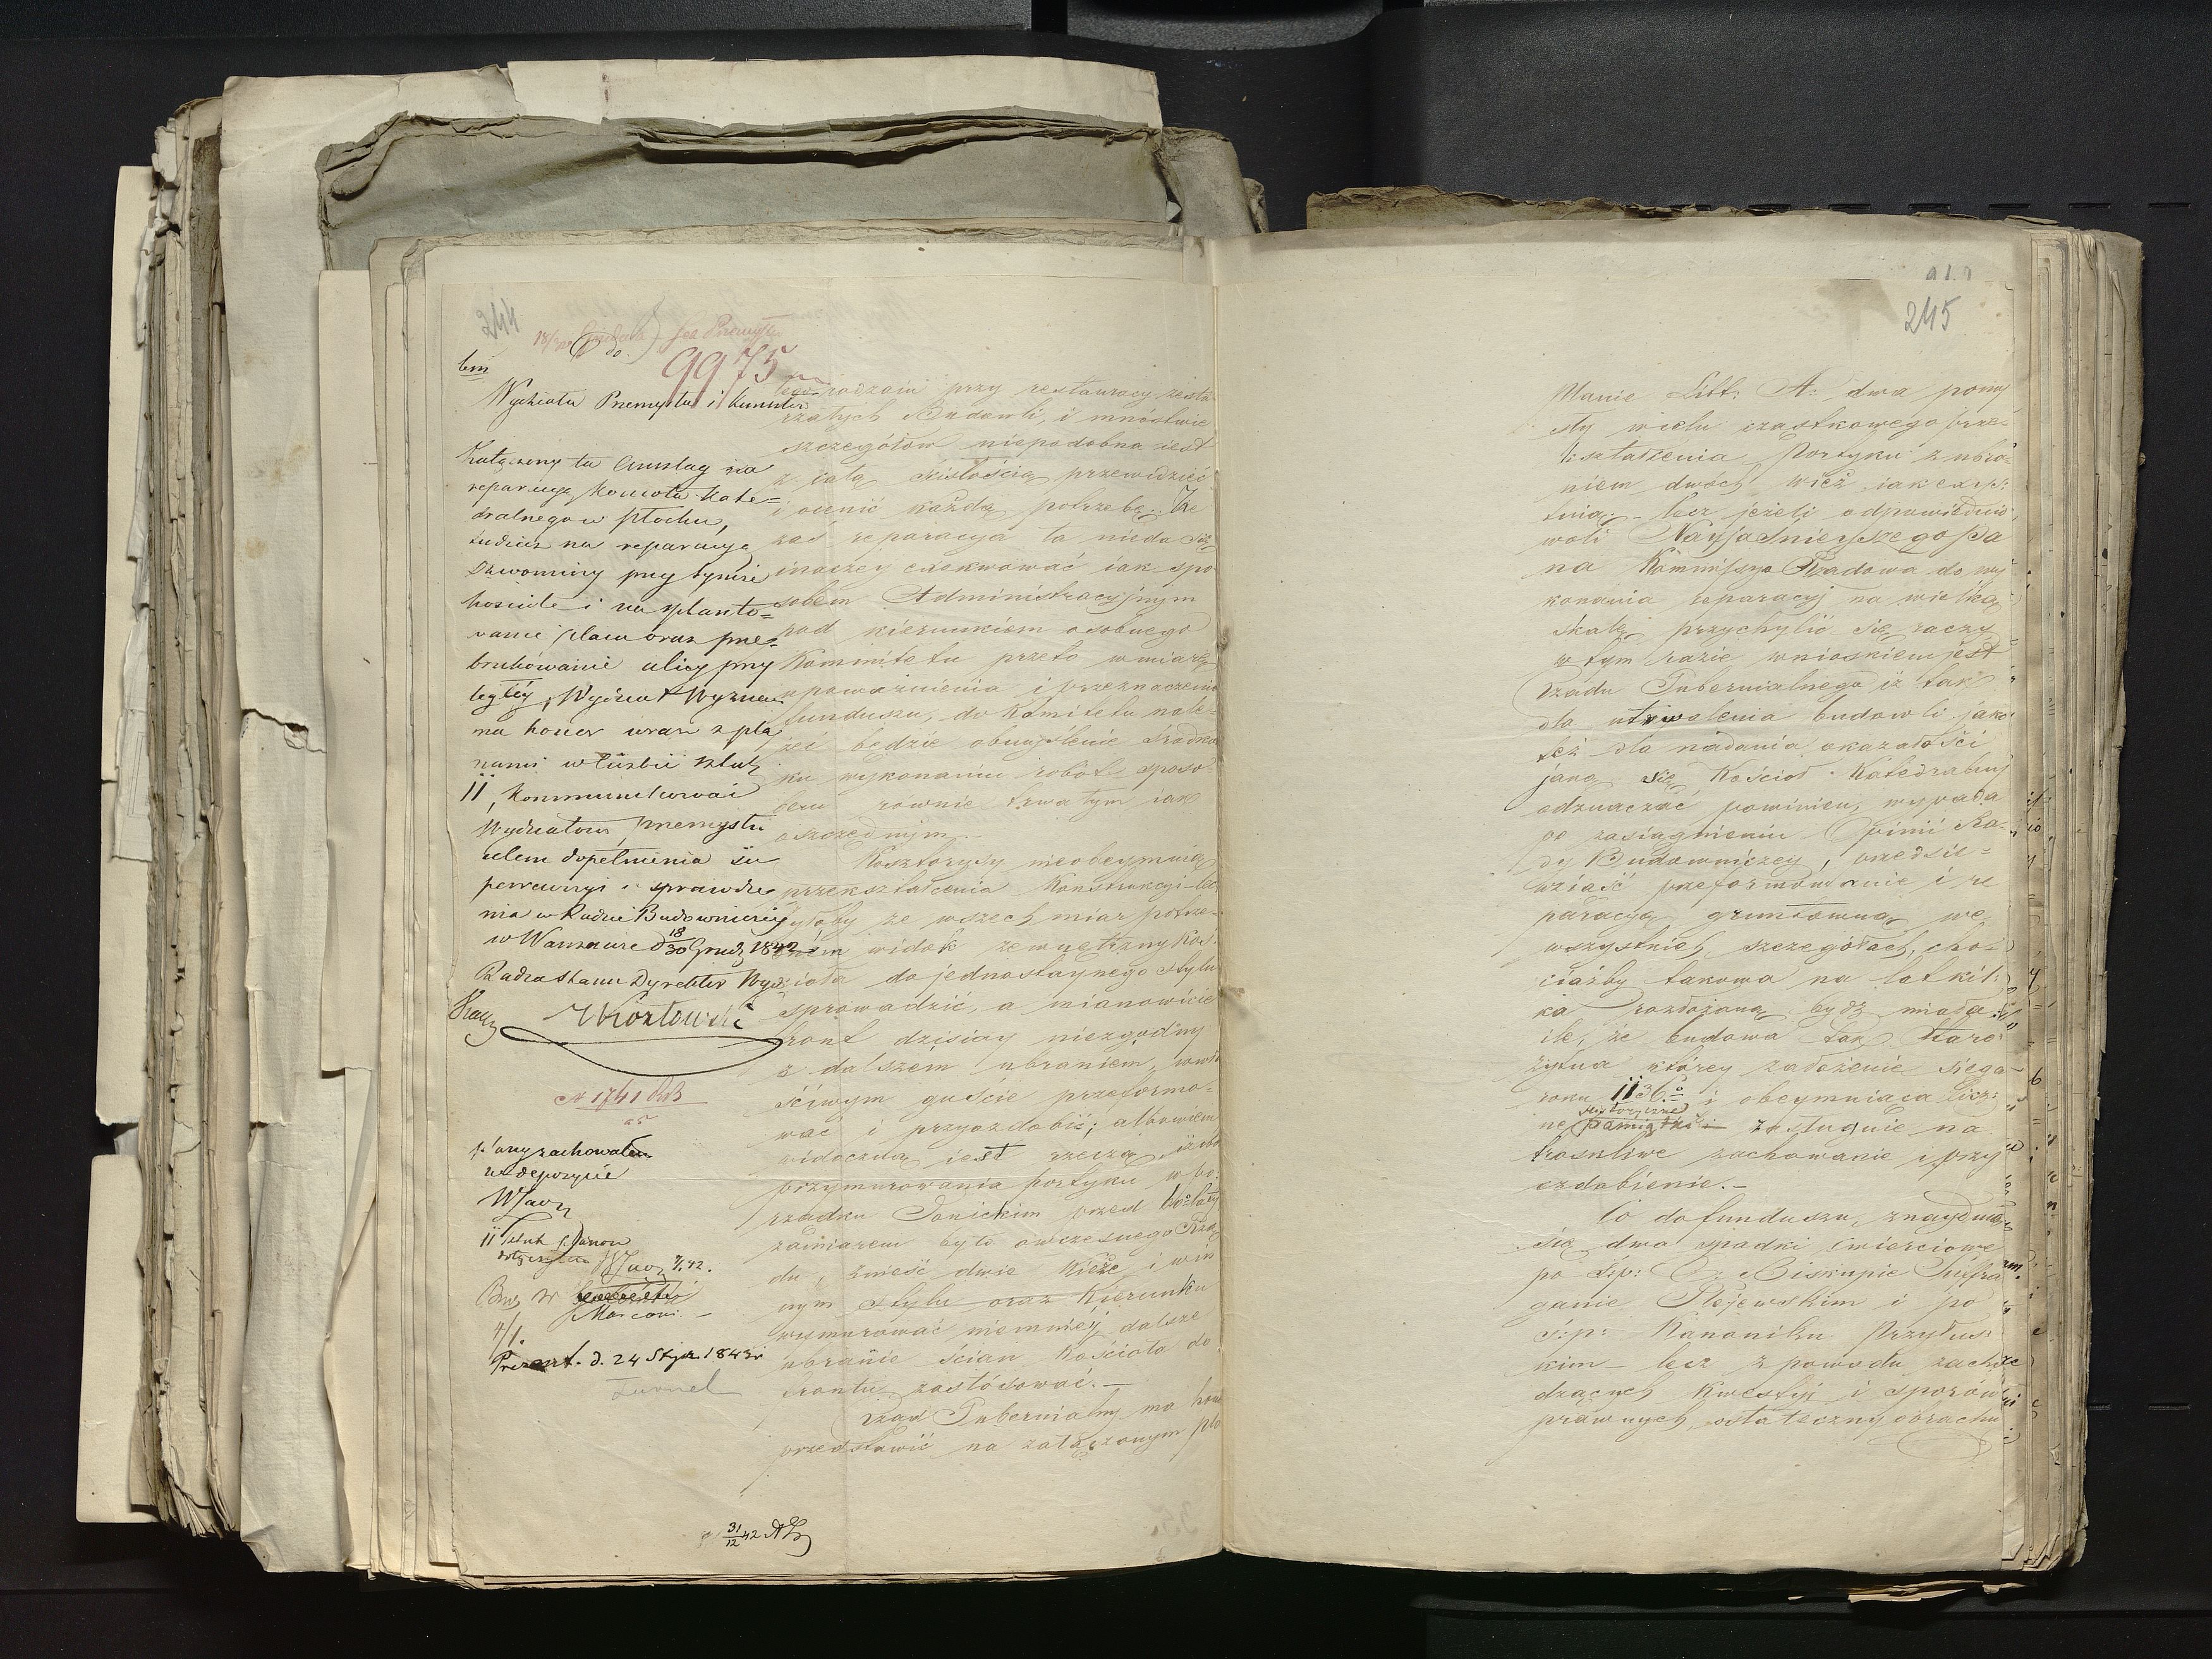 244
18/30
do
9975
tem
Wydziału Przemysłu i Kunsztów
Załączony tu Anszlag na
reparacyę Kościoła Kate=
dralnego w Płocku,
tudzież na reparacyę
Dzwonnicy przy tymże
kościele i na splanto=
wanie placu oraz prze=
brukowanie ulicy przy
ległéy, Wydział Wyznań
ma honor wraz z pla
nami w liczbie sztuk
11, kommunikować
Wydziałowi Przemysłu
celem dopełnienia su
perrewizyi i sprawdze
nia w Radzie Budowniczéy
w Warszawie d 18/30 Grud. 1842
Radca Stanu Dyrektor Wydz
Kozłowski
N 1741 RB
zachowałem
w depozycie
11 sztuk planów
Marconi. –
4/1.
Prezent. d. 24 Stycz 1843 r
31/12 42
tego rodzaiu przy restauracyi zesta
rzałych Budowli, i mnóstwie
szczegółów niepodobna iest
z całą ścisłością przewidzieć
i ocenić każdą potrzebę. Że
zaś reparacya ta nieda się
inaczey exekwować iak spo
sobem Administracyjnym
pod kierunkiem osobnego
Kommitetu przeto w miarę
upoważnienia i przeznaczenia
funduszu, do Komitetu nale-
żeć będzie obmyślenie środków
ku wykonaniu robót sposo-
bem równie trwałym iak
oszczędnym. –
Kosztorysy nieobeymuią
przekształcenia Konstrukcyi – lecz
byłoby ze wszech miar potrze-
bném widok zewnętrzny Koś-
cioła do jednostaynego stylu
sprowadzić, a mianowicie
front dzisiay niezgodny
z dalszem ubraniem, w wła
ściwym guście przeformo-
wać i przyozdobić; albowiem
widoczną iest rzeczą, iż do
przymurowania portyku w po-
rządku Jonickim przed
zamiarem było owczesnego Rzą
du, znieść dwie Wieże i w in
nym stylu oraz kierunku
wymurować niemniéy dalsze
ubranie ścian Kościoła do
frontu zastósować. –
Rząd Gubernialny ma honor
przedstawić na załączonym pla
245
Manie Litt: A: dwa pomy
sły wielu cząstkowego prze-
kształcenia Portyku z ubra-
niem dwóch wież iak exys-
tuią – lecz jeżeli odpowiednio
woli Nayjaśnieyszego Pa
na Kommissya Rządowa do wy
konania reparacyj na wielką
skalę przychylić się raczy
w tym razie wnioskiem jest
Rządu Gubernialnego iż tak
dla utrwalenia budowli jako
też dla nadania okazałości
jaką się Kościoł Katedralny
odznaczać powinien, wypada
po zasiągnieniu Opinii Ra-
dy Budowniczey, przedsię=
wziąść przeformowanie i re
paracyą gruntowną we
wszystkich szczegółach, cho-
ciażby takowa na lat kil-
ka rozłożoną bydź miała
ile, że budowa tak staro
żytna którey założenie sięga
roku 1136º i obeymuiąca licz-
ne historyczne pamiątki – zasługuie na
troskliwe zachowanie i przy
ozdobienie. –
Co do funduszu, znayduią
się dwa spadki ćwierciowe
po Ś.p: X. Biskupie Sufra
ganie Plejewskim i po
ś:p: Kanoniku Przyłus
kim – lecz z powodu zacho
dzących kwestyj i sporów
prawnych, ostateczny obrachu